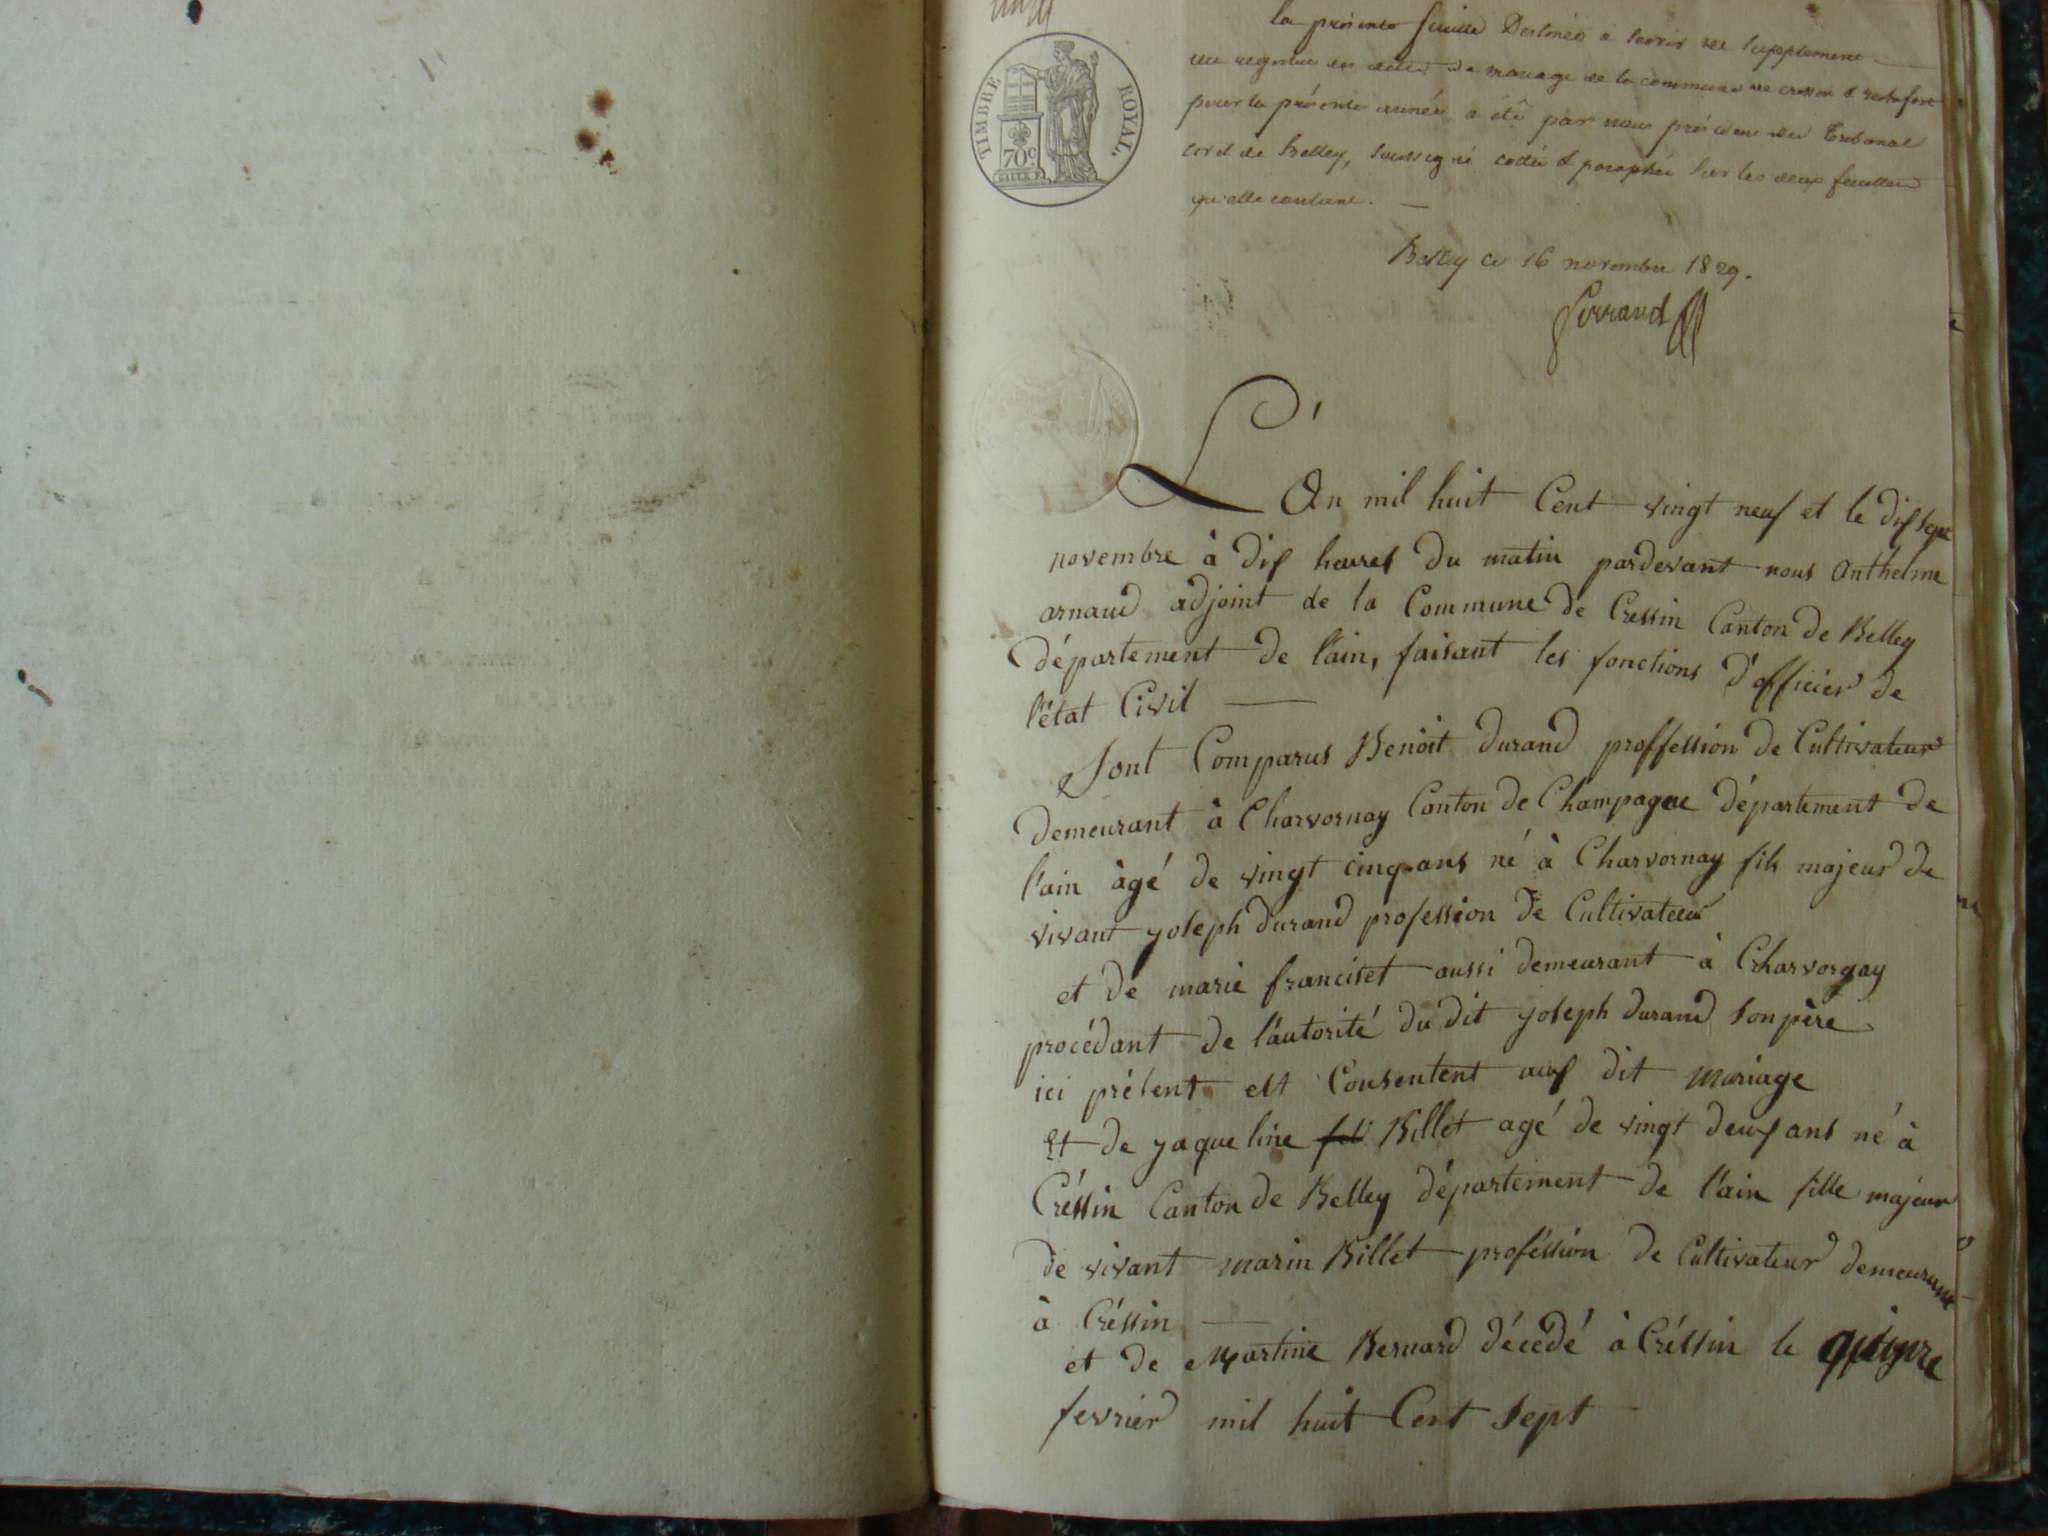 la présente feuille Destinée à servir de supplement
au registre des actes de mariage de la commune de cressin & rochefort
pour la présente année, a été par nous président du Tribunal
civil de Belley, soussigné cotée & paraphée sur les deux feuillets
qu'elle contient. —
Belley ce 16 novembre 1829.
Ferrand
TIMBRE ROYAL.
70c
L'An mil huit Cent vingt neuf et le dix sept
novembre à dix heures du matin pardevant nous Anthelme
arnaud adjoint de la Commune de Cressin Canton de Belley
département de l'ain, faisant les fonctions d'officier de
l'état Civil —
Sont Comparus Benoit durand proffession de Cultivateur
demeurant à Charvornay Canton de Champagne département de
l'ain àgé de vingt cinq ans né à Charvornay fils majeur de
vivant joseph durand profession de Cultivateur
et de marie franciset aussi demeurant à Charvorgay
procédant de l'autorité du dit joseph durand son père
ici présent est Consentent aux dit mariage
Et de jaqueline Billet agé de vingt deux ans né à
Créssin Canton de Belley département de l'ain fille majeur
de vivant marin Billet proféssion de Cultivateur demeurant
à Créssin —
et de Martine Bernard décédé à Créssin le quinze
fevrier mil huit Cent sept